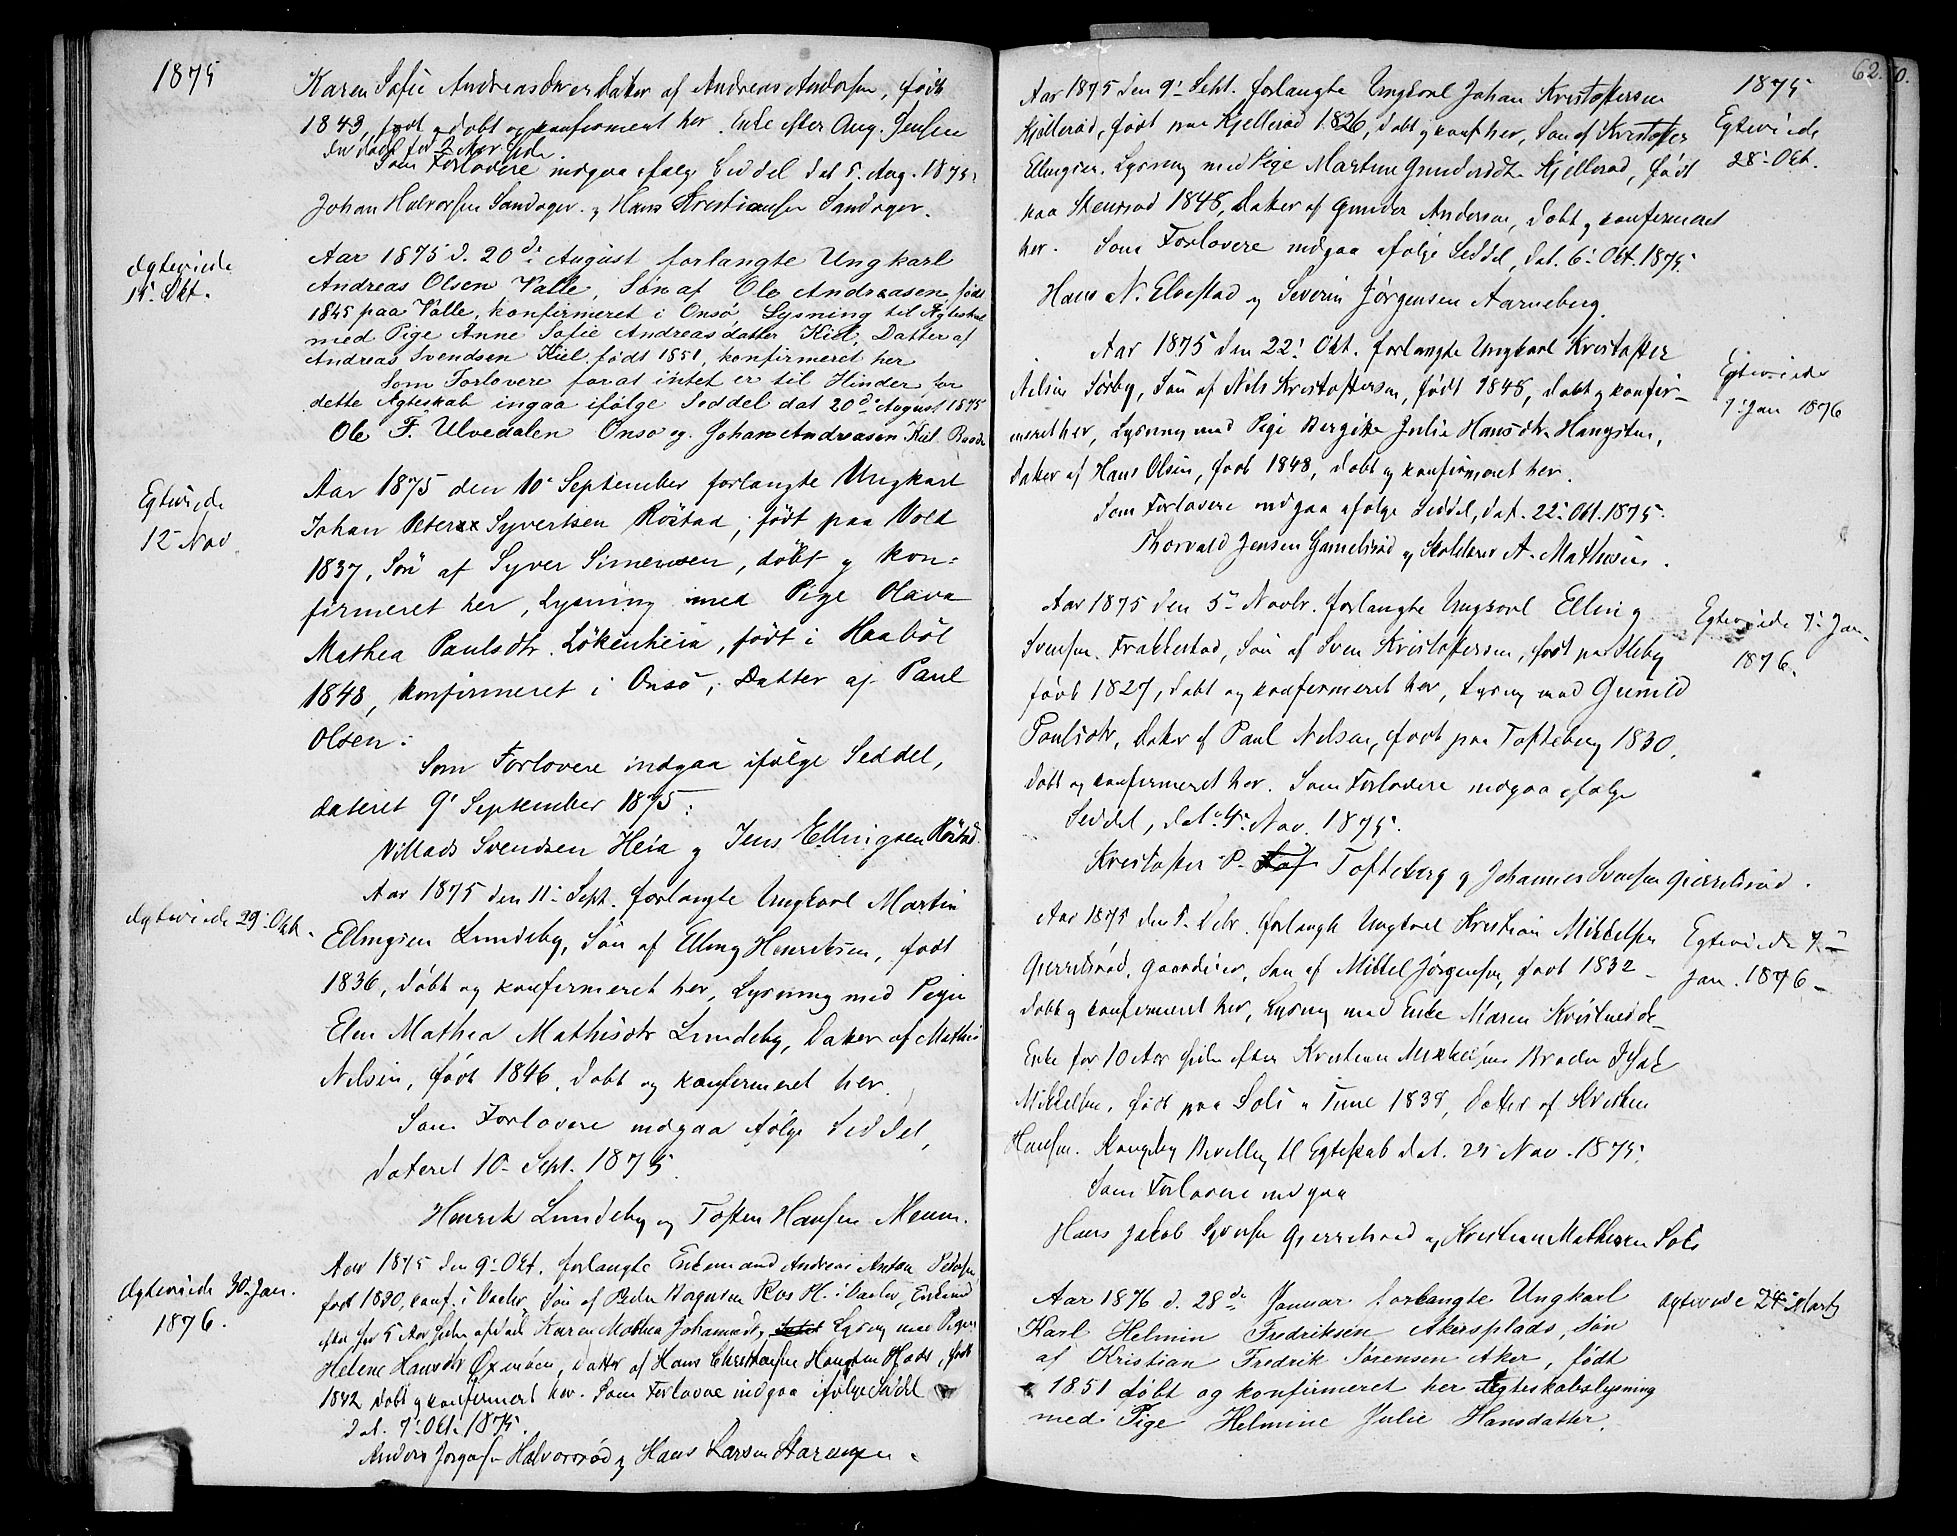 1875
Karen Sofie Andreasdtr Datter af Andreas Andersen, født
1843, født døbt og konfirmeret her. Enke efter Aug. Jensen
der døde for 2 Aar siden.
Som Forlovere indgaa ifølge Seddel dat 5. Aug. 1875
Johan Halvorsen Sandager og Hans Kristiansen Sandager.
Ægteviede
15 Okt.
Aar 1875 d. 20de August forlangte Ungkarl
Andreas Olsen Valle, Søn af Ole Andreasen, født
1845 paa Valle, konfirmeret i Onsø Lysning til Ægteskab
med Pige Anne Sofie Andreasdatter Kiel, Datter af
Andreas Svendsen Kiel født 1851, konfirmeret her
Som Forlovere for at intet er til Hinder for
dette Ægteskab ingaa ifølge Seddel dat 20de August 1875
Ole F. Ulvedalen Onsø og Johan Andreasen Kiel Raade
Egteviede
12 Nov.
Aar 1875 den 10' September forlangte Ungkarl
Johan Peter Syvertsen Röstad, født paa Vold
1837, Sön af Syver Simensen, döbt og kon-
firmeret her, Lysning med Pige Olava
Mathea Paulsdtr. Lökenheia, født i Haaböl
1848, konfirmeret i Onsö, Datter af Paul
Olsen.
Som Forlovere indgaa ifølge Seddel,
dateret 9' September 1875:
Villads Svendsen Heia og Jens Ellingsen Röstad.
Ægteviede 29' Okt.
Aar 1875 den 11' Sept. forlangte Ungkarl Martin
Ellingsen Lundeby, Sön af Elling Henriksen, født
1836, döbt og konfirmeret her, Lysning med Pigen
Elen Mathea Mathisdtr Lundeby, Datter af Mathis
Nilsen, født 1846, döbt og konfirmeret her.
Som Forlovere indgaa ifølge Seddel,
dateret 10' Sept. 1875.
Henrik Lundeby og Toften Hansen Menum.
Ægteviede 30 Jan.
1876.
Aar 1875 den 9' Okt. forlangte Enkemand Andreas Anton
født 1830, konf. i Vaaler, Sön af Peder i Vaaler, Enkemand
efter for 5 Aar siden afdøde Karen Mathea Johannesdtr, Lysning med Pigen
Helene Hansdtr Oxenöen, Datter af Hans Christensen, født
1842 döbt og konfirmeret her. Som Forlovere indgaa ifølge Seddel
dat. 7' Okt. 1875.
Anders Jörgensen Halvorsröd og Hans Larsen
62.
1875
Aar 1875 den 9' Sept. forlangte Ungkarl Johan Kristoffersen
Kjelleröd, født paa Kjelleröd 1826, döbt og konf her, Sön af Kristoffer
Ellingsen. Lysning med Pige Martine Gundersdtr Kjelleröd, født
paa Stensröd 1848, Datter af Gunder Andersen, döbt og konfirmeret
her. Som Forlovere indgaa ifølge Seddel, dat. 6' Okt. 1875.
Hans N. Elvestad og Severin Jørgensen Aarneberg.
Egteviede
28' Okt.
Aar 1875 den 22' Okt. forlangte Ungkarl Kristoffer
Nilsen Sörby, Sön af Nils Kristoffersen, født 1848, döbt og konfir-
meret her, Lysning med Pige Julie Hansdtr Haugsten,
Datter af Hans Olsen, født 1848, döbt og konfirmeret her.
Som Forlovere indgaa ifølge Seddel, dat. 22' Okt. 1875.
Thorvald Jensen Gamelsröd og Skolelærer A. Mathisen.
Egteviede
7' Jan 1876
Aar 1875 den 5' Novbr. forlangte Ungkarl Elling
Svensen Frakkestad, Sön af Sven Kristoffersen, født paa Sleby
født 1827, döbt og konfirmeret her, Lysning med Gunild
Paulsdtr, Datter af Paul Nilsen, født paa Tofteberg 1830,
döbt og konfirmeret her. Som Forlovere indgaa ifølge
Seddel, dat. 4' Nov. 1875.
Kristoffer P. Tofteberg og Johannes Svensen Gjerrelsröd.
Egteviede 7' Jan.
1876.
Aar 1875 den 5. Debr. forlangte Ungkarl Kristian Mikkelsen
Gjerrelsröd, Gaardeier, Sön af Mikkel Jørgensen, født 1832
döbt og konfirmeret her, Lysning med Enke Maren
Enke for 10 Aar siden efter Kristian Mikkelsens Broder Isak
Mikkelsen, født paa Soli i Tune 1838, Datter af
Hansen. Kongelig Bevilling til Egteskab dat. 25 Nov. 1875.
Som Forlovere indgaa
Hans Jakob Syversen Gjerrelsröd og Kristian Mathisen Soli
Egteviede 7'
Jan. 1876
Aar 1876 d. 28de Januar forlangte Ungkarl
Karl Helmin Fredriksen Akersplads, søn
af Kristian Fredrik Sørensen Aker, født
1851 døbt og konfirmeret her Ægteskabslysning
med Pige Helmine Julie Hansdatter.
Ægteviede 24' Marts